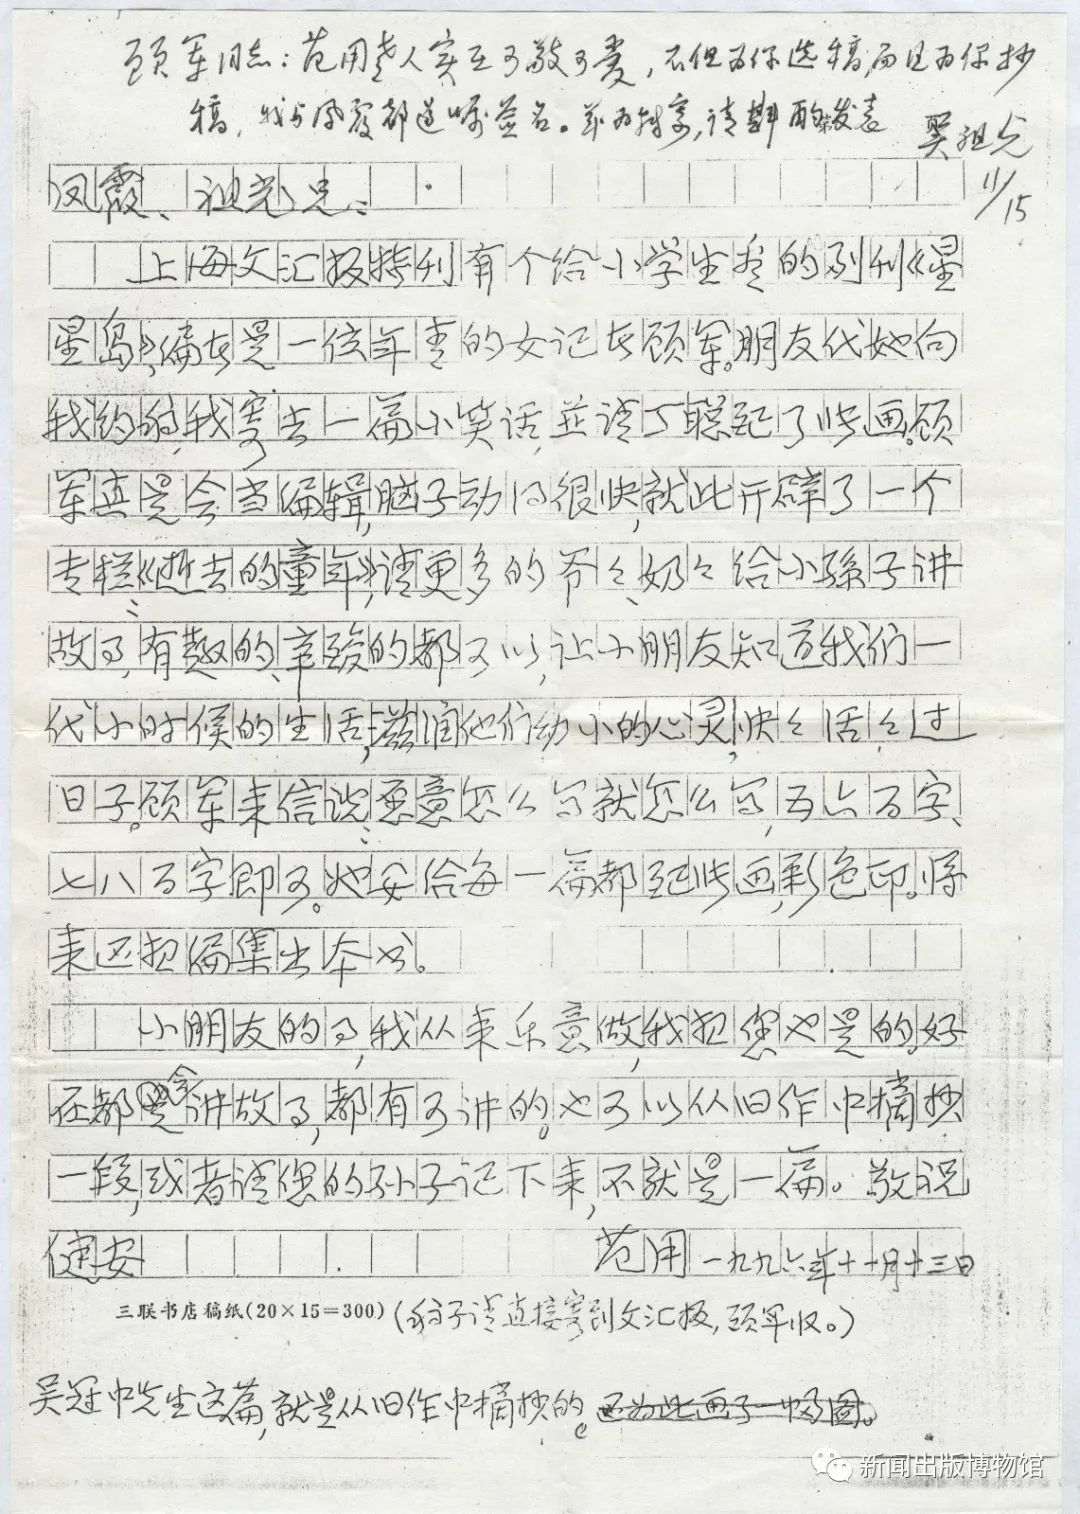 顾军同志：范用老人实在可敬可爱，不但为你选稿，而且为你抄
稿，我与凤霞都遵嘱签名。并为转寄，请斟酌发表
吴祖光
11/15
凤霞、祖光兄：
上海文汇报特刊有个给小学生看的副刊《星
星岛》，编者是一位年青的女记者顾军。朋友代她向
我约稿，我寄去一篇小笑话，並请丁聪配了些画。顾
军真是会当编辑，脑子动得很快，就此开辟了一个
专栏《逝去的童年》，请更多的爷々、奶々给小孫子讲
故事，有趣的、辛酸的都可以，让小朋友知道我们一
代小时候的生活，滋润他们幼小的心灵，快々活々过
日子。顾军来信说：愿意怎么写就怎么写，五六百字、
七八百字即可。她要给每一篇都配些画，彩色印。将
来还想编集出本书。
小朋友的事，我从来乐意做，我想您也是的。好
在都会讲故事，都有可讲的。也可以从旧作中摘抄
一段，或者请您的孙子记下来，不就是一篇。敬祝
健安
范用 一九九六年十一月十三日
三联书店稿纸(20×15=300)(稿子请直接寄到文汇报，顾军收。)
吴冠中先生这篇，就是从旧作中摘抄的。还为此画了一幅图。
新闻出版博物馆